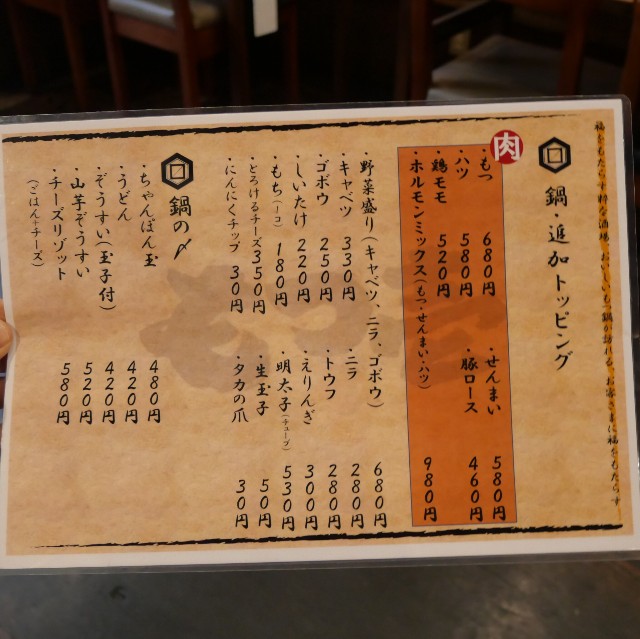 福をもたらす粋な酒場。おいしいもつ鍋が訪れる、お客さまに福をもたらす
鍋・追加トッピング
肉
・もつ 680円
・せんまい 580円
・ハツ 580円
・豚ロース 460円
・鶏モモ 520円
・ホルモンミックス(もつ・せんまい・ハツ) 980円
・野菜盛り(キャベツ、ニラ、ゴボウ) 680円
・キャベツ 330円
・ニラ 280円
・ゴボウ 250円
・トウフ 280円
・しいたけ 220円
・えりんぎ 300円
・もち(一コ) 180円
・明太子(チューブ) 530円
・とろけるチーズ 350円
・生玉子 50円
・にんにくチップ 30円
・タカの爪 30円
鍋の〆
・ちゃんぽん玉 480円
・うどん 420円
・ぞうすい(玉子付) 420円
・山芋ぞうすい 520円
・チーズリゾット 580円
(ごはん+チーズ)